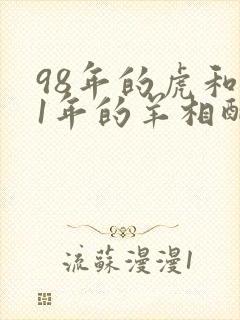 98年的虎和
1年的羊相配
流蘇漫漫1